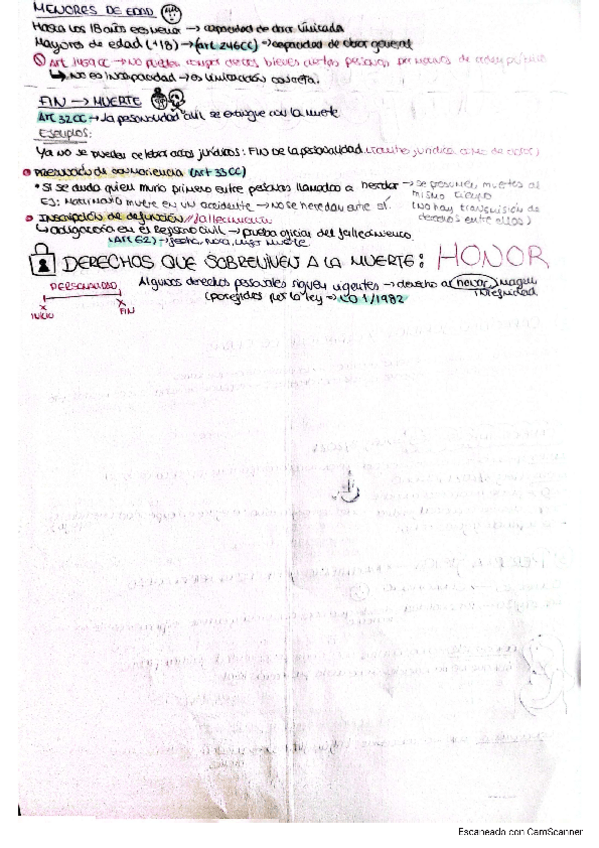 MENORES DE EDAD
Hasta los 18 años es menor → capacidad de obrar limitada
Mayores de edad (+18) → (art 246CC) → capacidad de obrar general
① Art 1459 CC → no pueden comprar ciertos bienes ciertas personas por razones de orden público
↳ No es incapacidad → es limitación concreta.
FIN → MUERTE
Art 32CC → la personalidad civil se extingue con la muerte
Ejemplos:
Ya no se pueden celebrar actos jurídicos: FIN DE LA PERSONALIDAD
Presunción de conmoriencia (art 33CC)
* Si se duda quien murio primero entre personas llamadas a heredar → se presumen muertos al mismo tiempo
EJ: Matrimonio muere en un accidente → no se heredan entre sí. (no hay transmisión de derechos entre ellos)
Inscripción de defunción // fallecimiento
↳ obligatoria en el Registro Civil → prueba oficial del fallecimiento.
(Art 62) → fecha, hora, lugar muerte
DERECHOS QUE SOBREVIVEN A LA MUERTE: HONOR
PERSONALIDAD
INICIO
FIN
Algunos derechos personales siguen vigentes → derecho al honor, imagen intimidad
(protegidos por la ley → LO 1/1982
Escaneado con CamScanner